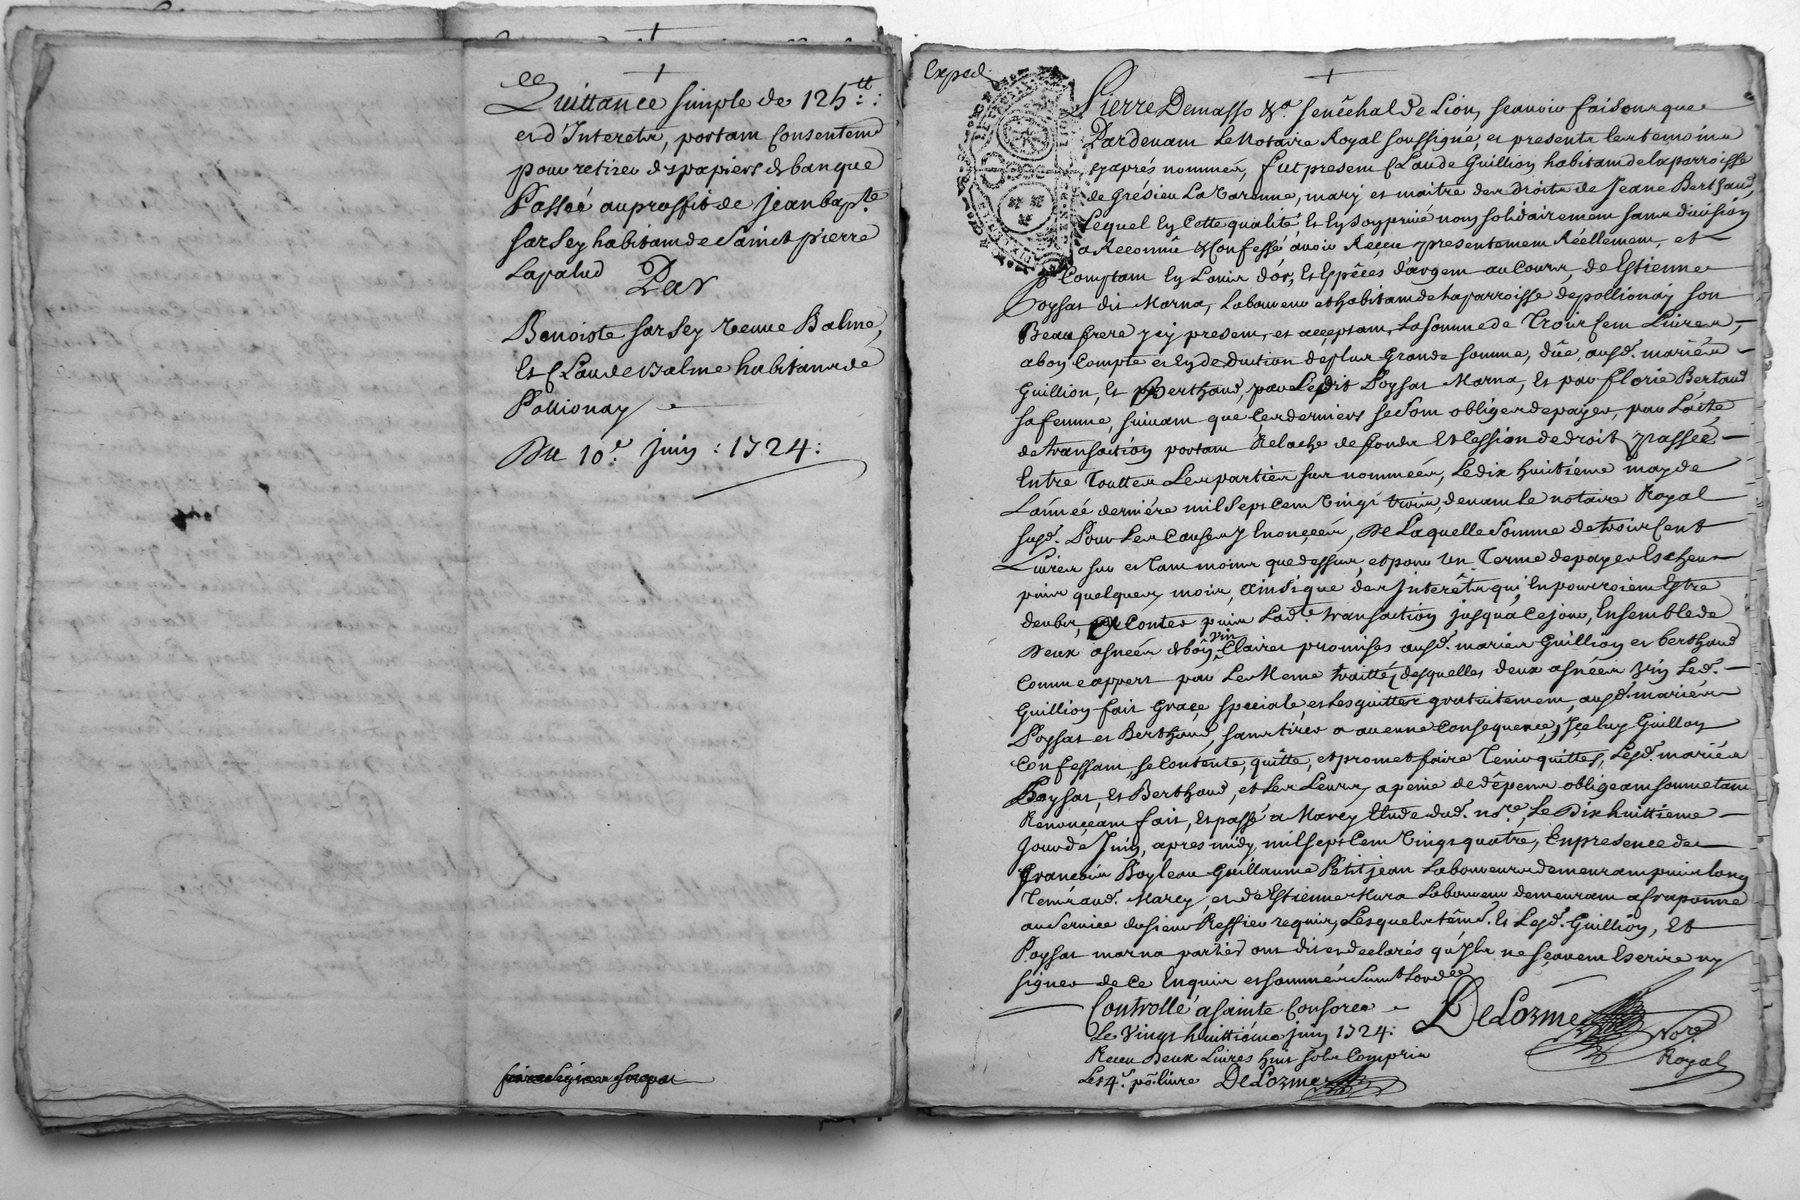 Quittance simple de 125 ₶:
et d'Interets, portant Consentemt
pour retirer des papiers de banque
Passée au proffit de jean bapte
sarsey habitant de Sainct pierre
Lapalud Par
Benoiste sarsey veuve Balme,
Et Claude Balme habitans de
Pollionay
Du 10e juin : 1724 :
Exped
Pierre Demasso &a senêchal de Lion, sçavoir faisons que
Pardevant Le Notaire Royal soussigné, et presents les temoins
cyaprés nommés, fut present Claude Guillion habitant de la parroisse
de Grésieu La Varenne, mary et maitre des droits de Jeane Berthaud,
Lequel En Cette qualité, et En son privé nom solidairement sans division
a Reconnû & Confessé avoir Reçeu presentement Réellement, et
Comptant En Louis d'or, et Espêces d'argent au Cours, de Estienne
Poysat dit Marna, Laboureur et habitant de la parroisse de pollionay son
Beau frere icy present, et acceptant, La somme de Trois Cent Livres,
a bon Compte et En deduction de plus Grande somme, dûe, ausd. mariés
Guillion, Et Berthaud, par Ledit Poysat Marna, Et par florie Bertaud
sa femme, suivant que Ces derniers se sont obligés de payer, par L'acte
de transaction portant Relache de fonds Et Cession de droit passée
Entre Touttes Les parties sus nommées, Le dix huitiéme may de
L'année derniére mil sept Cent vingt trois, devant le notaire Royal
susd. Pour Les Causes y Enoncées, De Laquelle Somme de trois Cent
Livres sur et tant moins que dessus, et pour Un Terme de payer Escheu
puis quelques mois, ainsi que des Interêts qui En pourroient Estre
deubs, Contes puis Lad.te transaction jusqu'a Ce jour, Ensemble de
Deux asnées de bon vin Clairet promises ausd. mariés Guillion et berthaud
Comme appert par Le Meme traitté, desquelles deux asnées vin Led.
Guillion fait Graçe speciale, et Les quitte gratuitement, ausd. mariés
Poysat et Berthaud, sans tirer a aucune Consequence, Içeluy Guillion
Confessant, se Contente, quitte, et promet faire Tenir quittes, Lesd. mariés
Poysat, Et Berthaud, et Les Leurs, a peine de dêpens obligeant soumettant
Renonçeant fait, Et passé a Marcy Etude dud. no.re, Le Dix huittiéme
Jour de Juin, apres midy, mil sept Cent Vingt quatre, En presence de
francois Boyleau Guillaume Petit jean Laboureurs demeurant puis long
Tems aud. Marcy, et d'Estienne Mura Laboureur demeurant a fraponne
au Service du sieur Reffieu requis, Lesquels têm. Et Lesd. Guillion, Et
Poysat marna parties ont dit et declarés qu'Ils ne sçavent Escrire ny
signer de Ce Enquis et sommés
Controllé a Sainte Consorce
Le Vingt huittiéme juin 1724 :
Receu Deux Livres huit sols Compris
Les 4 s. po. livre DeLorme
DeLorme No.re Royal